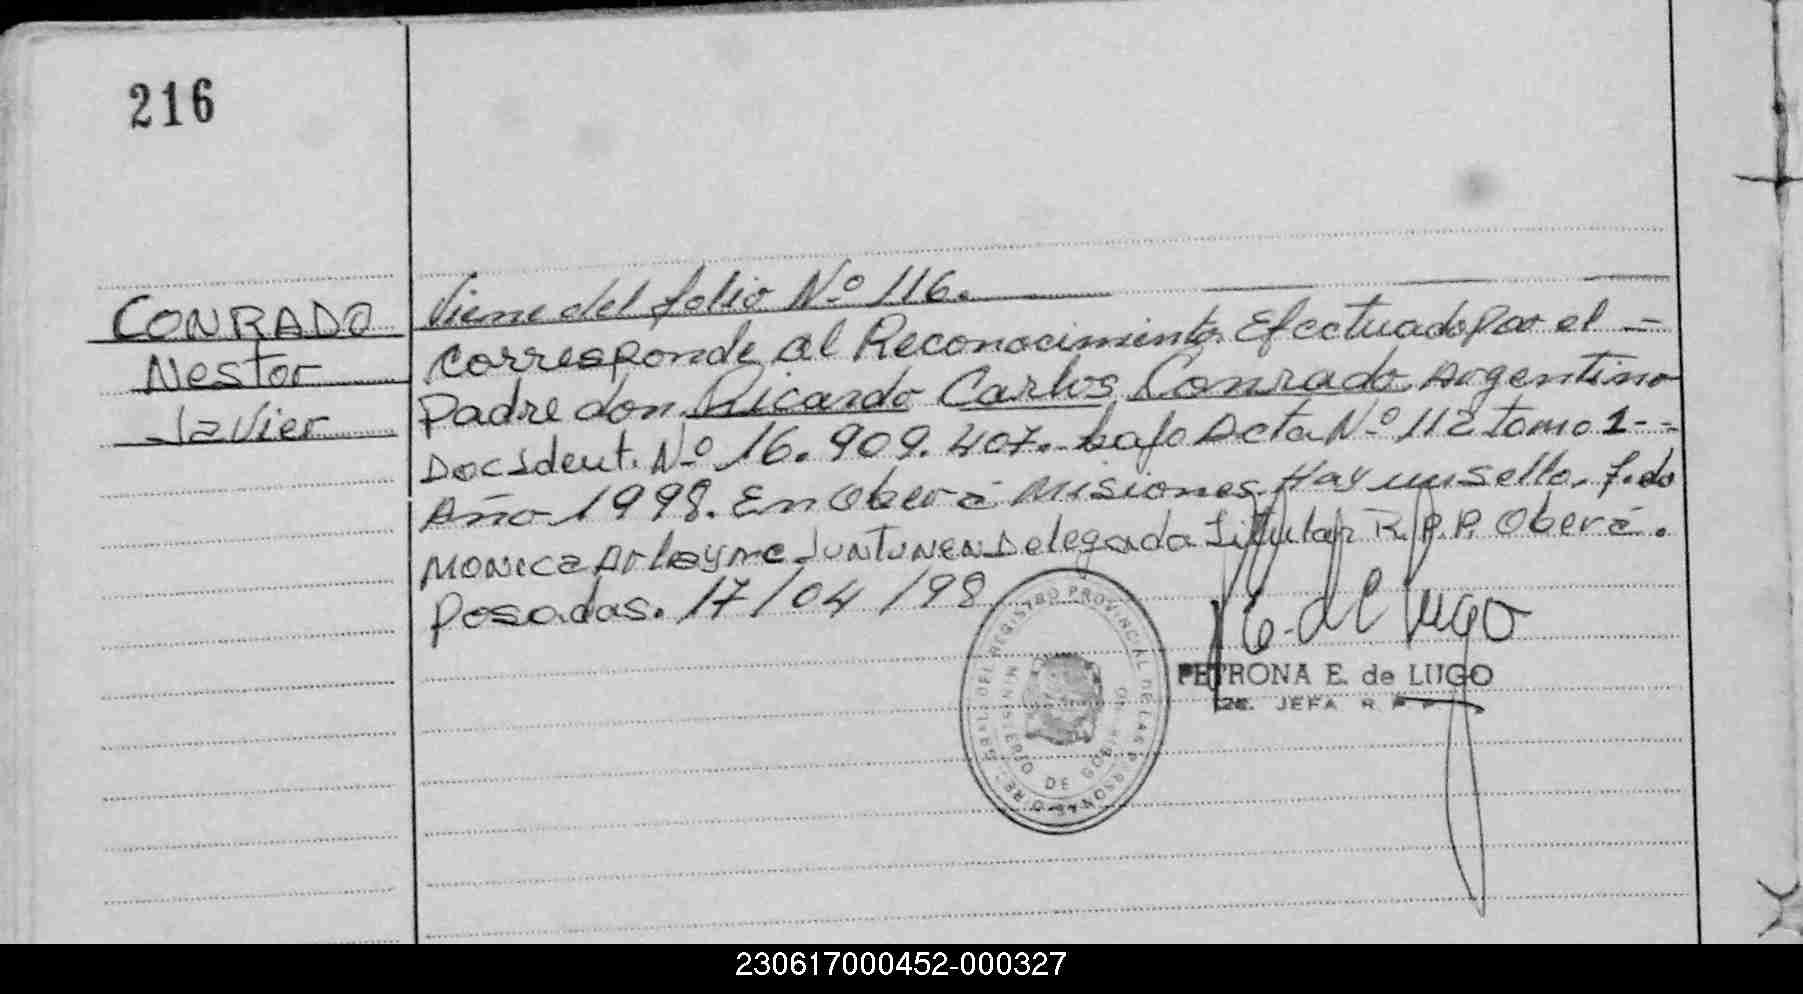 216
CONRADO
Nestor
Javier
Viene del folio Nº 116.
Corresponde al Reconocimiento Efectuado por el -
Padre don Ricardo Carlos Conrado Argentino
Doc Ident. Nº 16.909.407. bajo Acta Nº 112 tomo 1 - -
Año 1998. En Oberá Misiones. Hay un sello. f.do
Monica JUNTUNEN Delegada Titular R.P.P. Oberá.
Posadas. 17/04/98
E. de Lugo
PETRONA E. de LUGO
JEFA R P P
DEL REGISTRO PROVINCIAL DE LAS PERSONAS
MINISTERIO DE GOBIERNO
230617000452-000327